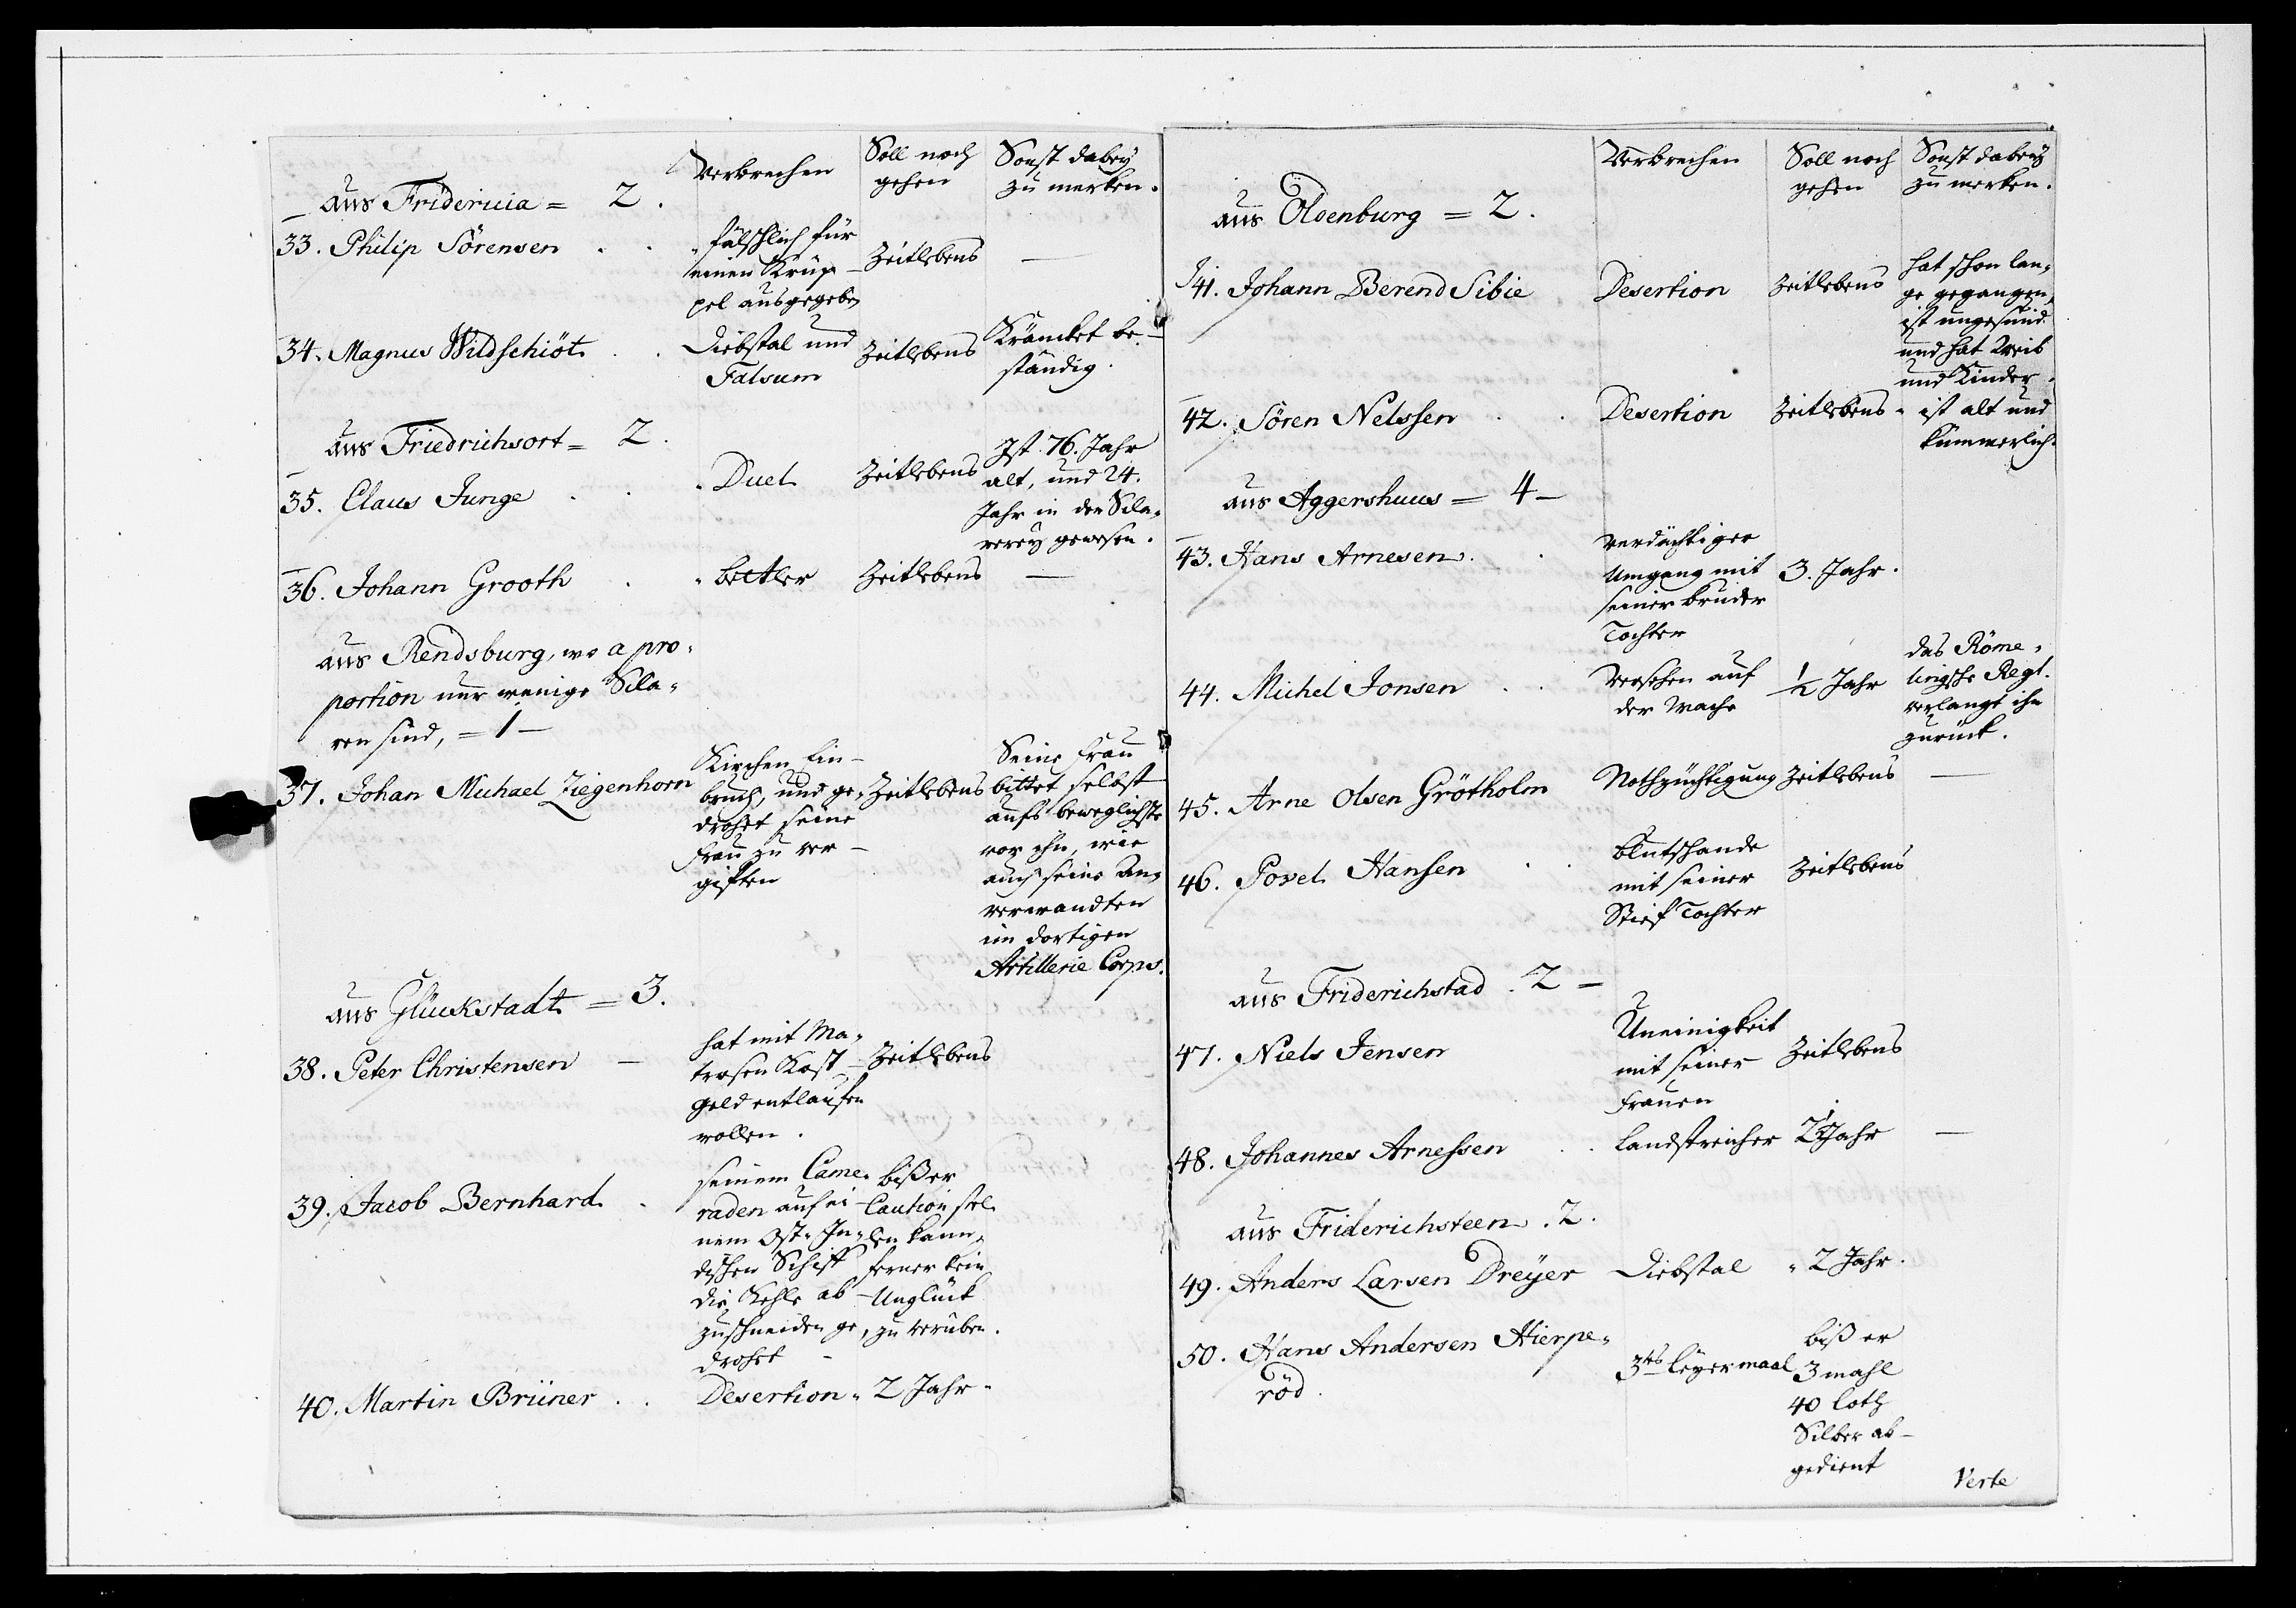 Verbrechen
Soll noch
gehen
Sonst dabey
zu merken.
aus Fridericia = 2.
33. Philip Sörensen
fälschlich für
einen Krüp-
pel ausgegeben
Zeitlebens
—
34. Magnus Wildschiöt
Diebstal und
Falsum
Zeitlebens
Kräncket be-
ständig.
aus Friedrichsort = 2.
35. Claus Junge
Duel
Zeitlebens
Ist 76. Jahr
alt, und 24.
Jahr in der Scla-
verey gewesen.
36. Johann Grooth
bettler
Zeitlebens
—
aus Rendsburg, wo a pro-
portion nur wenige Scla-
ven sind, = 1 —
37. Johan Michael Ziegenhorn
Kirchen Ein-
bruch, und ge-
drohet seine
Frau zu ver-
giften
Zeitlebens
Seine Frau
bittet selbst
aufs beweglichste
vor ihn, wie
auch seine An-
verwandten
im dortigen
Artillerie Corps.
aus Glückstadt = 3.
38. Peter Christensen —
hat mit Ma-
trosen Kost-
geld entlaufen
wollen.
Zeitlebens
39. Jacob Bernhard
seinem Came-
raden auf ei-
nem Ost-In-
dischen Schiff
die Kehle ab-
zuschneiden ge-
drohet —
biß er
Caution stel-
len kann,
ferner kein
Unglück
zu verüben.
40. Martin Brüner
Desertion
2 Jahr.
Verbrechen
Soll noch
gehen
Sonst dabey
zu merken.
aus Oldenburg = 2.
41. Johann Berend Sibie
Desertion
Zeitlebens
hat schon lan-
ge gegangen,
ist ungesund
und hat Weib
und Kinder.
42. Sören Nelssen
Desertion
Zeitlebens
ist alt und
kümmerlich.
aus Aggershuus = 4 —
43. Hans Arnesen
verdächtiger
Umgang mit
seiner bruder
Tochter
3. Jahr.
44. Michel Jonsen
Versehen auf
der Wache
1/2 Jahr
das Röme-
lingsche Regt.
verlangt ihn
zurück.
45. Arne Olsen Grötholm
Nothzüchtigung
Zeitlebens
—
46. Povel Hansen
blutschande
mit seiner
Stief Tochter
Zeitlebens
aus Friderichstad. 2 =
47. Niels Jensen
Uneinigkeit
mit seiner
Frauen
Zeitlebens
48. Johannes Arnessen
Landstreicher
Jahr
—
aus Friderichsteen. 2.
49. Anders Larsen Dreÿer
Diebstal
2 Jahr.
50. Hans Andersen Hierpe-
röd.
3tes leyermaal
biß er
3 mahl
40 loth
Silber ab-
gedient
Verte